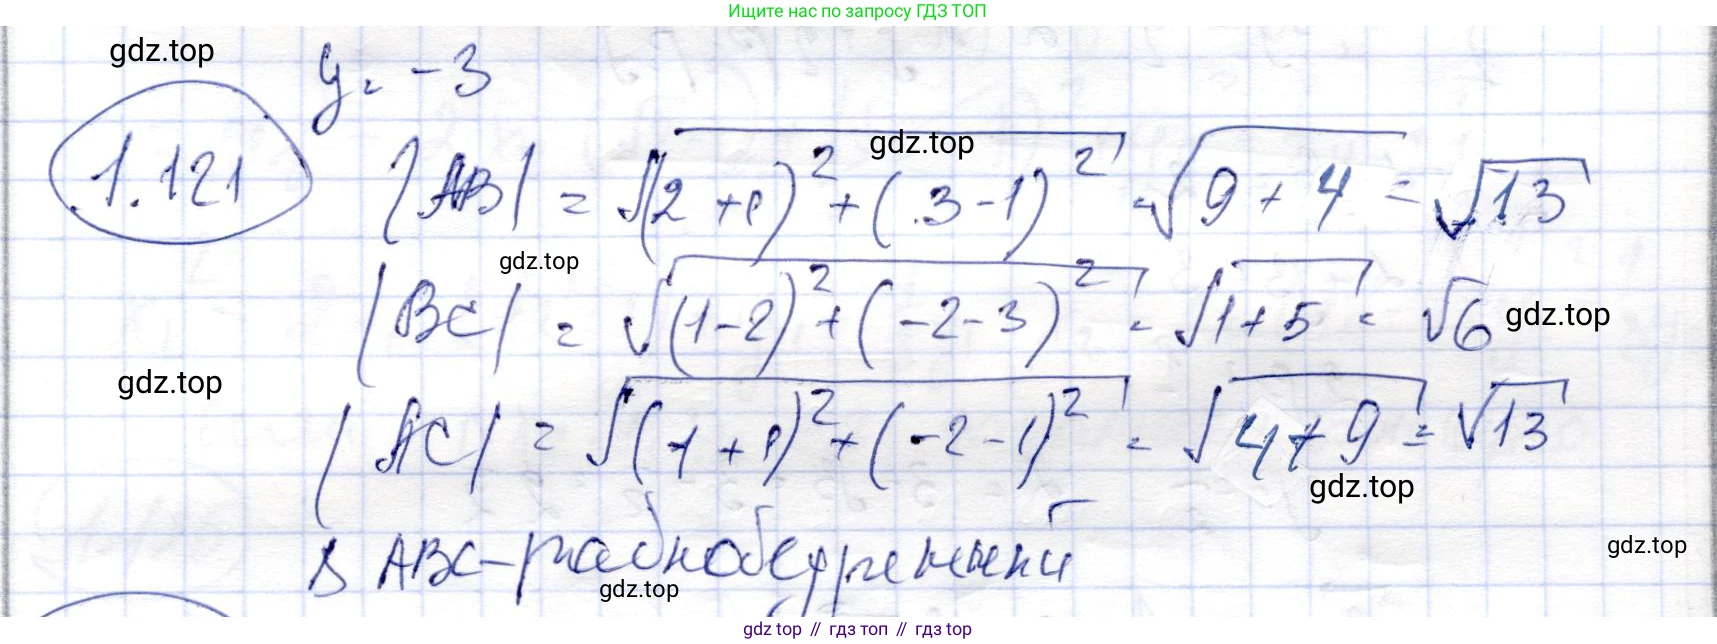 Ищите нас по запросу ГДЗ ТОП
gdz.top
y = -3
1.121
|AB| = √((2+1)² + (3-1)²) = √(9+4) = √13
gdz.top
gdz.top
|BC| = √((1-2)² + (-2-3)²) = √(1+5) = √6
gdz.top
gdz.top
|AC| = √((1+1)² + (-2-1)²) = √(4+9) = √13
gdz.top
Δ ABC - равнобедренный
gdz.top
gdz.top
gdz.top // гдз топ // гдз top